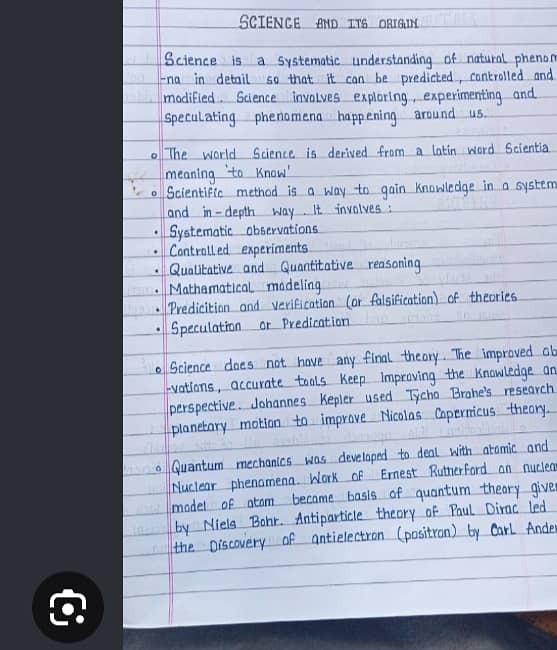 SCIENCE AND ITS ORIGIN
Science is a systematic understanding of natural phenom
-na in detail so that it can be predicted, controlled and
modified. Science involves exploring, experimenting and
speculating phenomena happening around us.
• The world Science is derived from a latin word Scientia
meaning 'to Know'
• Scientific method is a way to gain knowledge in a system
and in-depth way. It involves :
• Systematic observations
• Controlled experiments
• Qualitative and Quantitative reasoning
• Mathamatical modeling
• Predicition and verification (or falsification) of theories
• Speculation or Predication
• Science does not have any final theory. The improved ob
-vations, accurate tools keep Improving the Knowledge an
perspective. Johannes Kepler used Tycho Brahe's research
planetary motion to improve Nicolas Copernicus theory.
• Quantum mechanics was developed to deal with atomic and
Nuclear phenomena. Work of Ernest Rutherford on nuclear
model of atom became basis of quantum theory given
by Niels Bohr. Antiparticle theory of Paul Dirac led
the Discovery of antielectron (positron) by Carl Ander